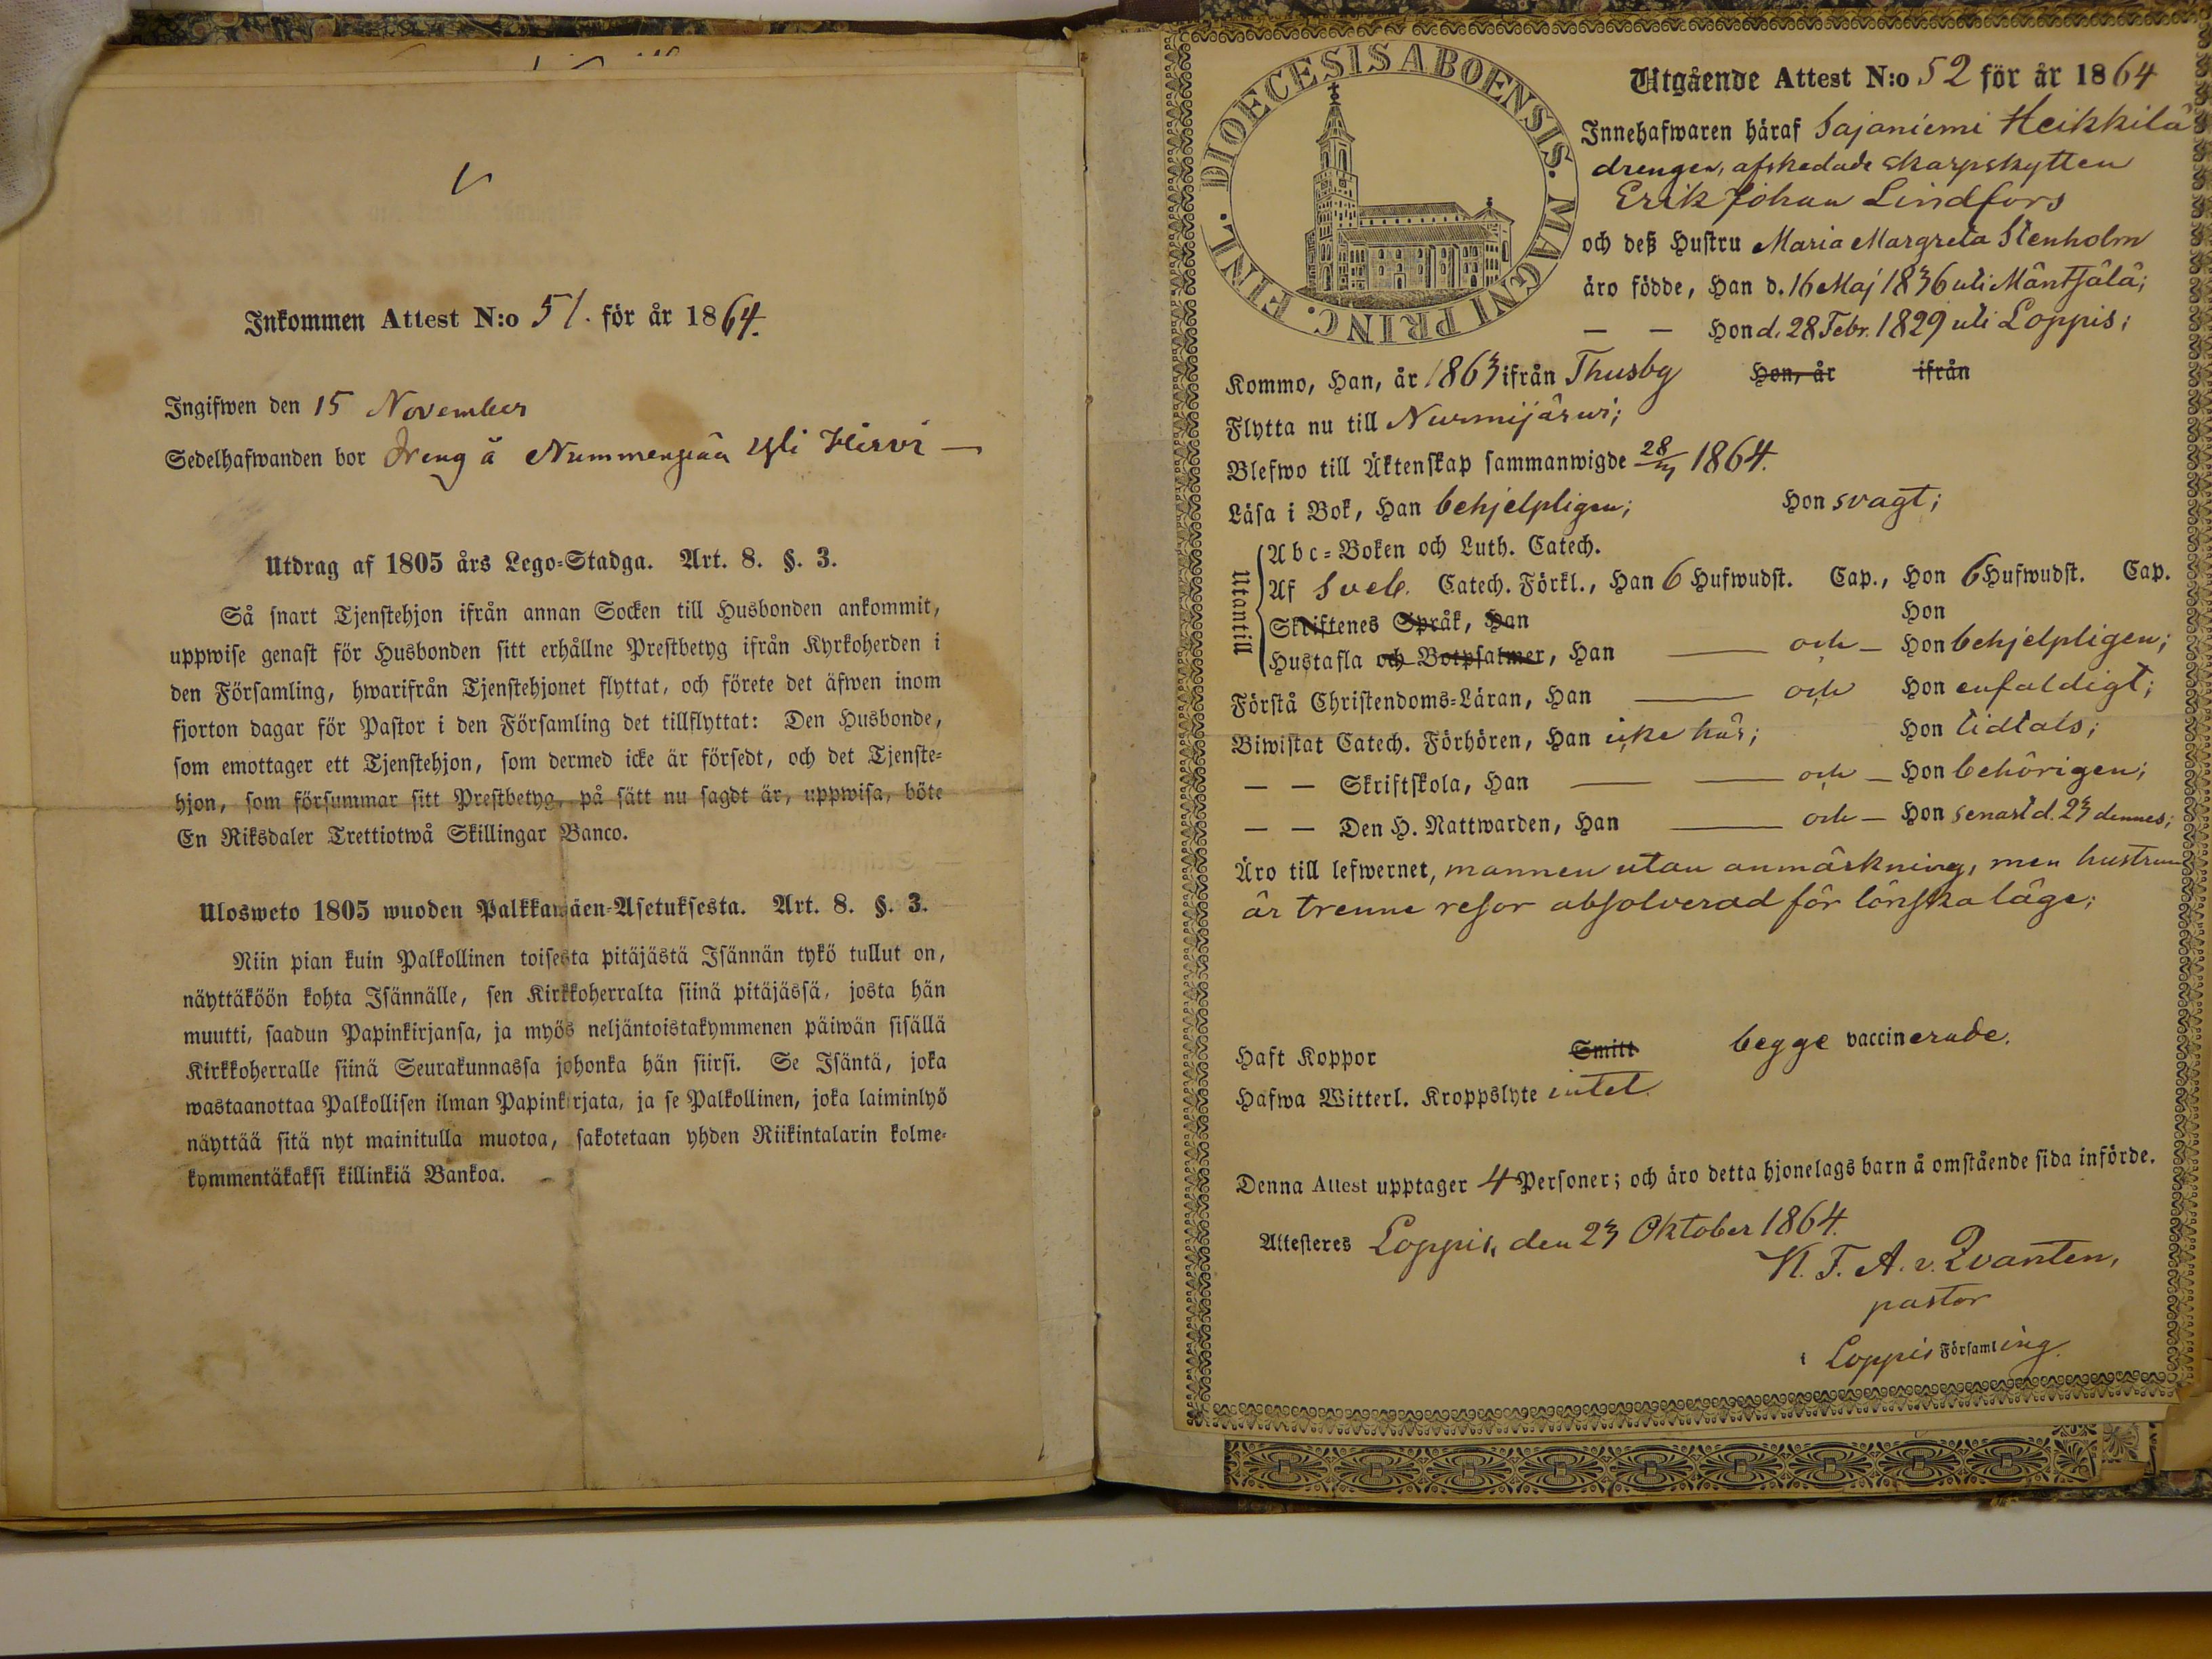 Inkommen Attest N:o 51. för år 1864.
Ingifwen den 15 November
Sedelhafwanden bor Dreng å Nummenpää Yli Hirvi —
Utdrag af 1805 års Lego-Stadga. Art. 8. §. 3.
Så snart Tjenstehjon ifrån annan Socken till Husbonden ankommit,
uppwise genast för Husbonden sitt erhållne Prestbetyg ifrån Kyrkoherden i
den Församling, hwarifrån Tjenstehjonet flyttat, och förete det äfwen inom
fjorton dagar för Pastor i den Församling det tillflyttat: Den Husbonde,
som emottager ett Tjenstehjon, som dermed icke är försedt, och det Tjenste-
hjon, som försummar sitt Prestbetyg, på sätt nu sagdt är, uppwisa, böte
En Riksdaler Trettiotwå Skillingar Banco.
Ulosweto 1805 wuoden Palkkawäen-Asetuksesta. Art. 8. §. 3.
Niin pian kuin Palkollinen toisesta pitäjästä Isännän tykö tullut on,
näyttäköön kohta Isännälle, sen Kirkkoherralta siinä pitäjässä, josta hän
muutti, saadun Papinkirjansa, ja myös neljäntoistakymmenen päiwän sisällä
Kirkkoherralle siinä Seurakunnassa johonka hän siirsi. Se Isäntä, joka
wastaanottaa Palkollisen ilman Papinkirjata, ja se Palkollinen, joka laiminlyö
näyttää sitä nyt mainitulla muotoa, sakotetaan yhden Riikintalarin kolme-
kymmentäkaksi killinkiä Bankoa.
DIOECESIS ABOENSIS. MAGNI PRINC. FINL.
Utgående Attest N:o 52 för år 1864
Innehafwaren häraf Sajaniemi Heikkilä
drengen, afskedade skarpskytten
Erik Johan Lindfors
och deß Hustru Maria Margreta Stenholm
äro födde, Han d. 16 Maj 1836 uti Mäntsälä;
— — Hon d. 28 Febr. 1829 uti Loppis;
Kommo, Han, år 1863 ifrån Thusby Hon, år ifrån
Flytta nu till Nurmijärwi;
Blefwo till Äktenskap sammanwigde 28/3 1864.
Läsa i Bok, Han behjelpligen; Hon svagt;
Utantill
Abc-Boken och Luth. Catech.
Af Sveb. Catech. Förkl., Han 6 Hufwudst. Cap., Hon 6 Hufwudst. Cap.
Skriftenes Språk, Han Hon
Hustafla och Botpsalmer, Han — och — Hon behjelpligen;
Förstå Christendoms-Läran, Han — och Hon enfaldigt;
Biwistat Catech. Förhören, Han icke här; Hon tidtals;
— — Skriftskola, Han — — och — Hon behörigen;
— — Den H. Nattwarden, Han — och — Hon senast d. 23 dennes;
Äro till lefwernet, mannen utan anmärkning, men hustrun
är trenne resor absolverad för lönskaläge;
Haft Koppor Smitt begge vaccinerade.
Hafwa Witterl. Kroppslyte intet.
Denna Attest upptager 4 Personer; och äro detta hjonelags barn å omstående sida införde.
Attesteres Loppis, den 23 Oktober 1864.
K. F. A. v. Qvanten,
pastor
i Loppis Församling.